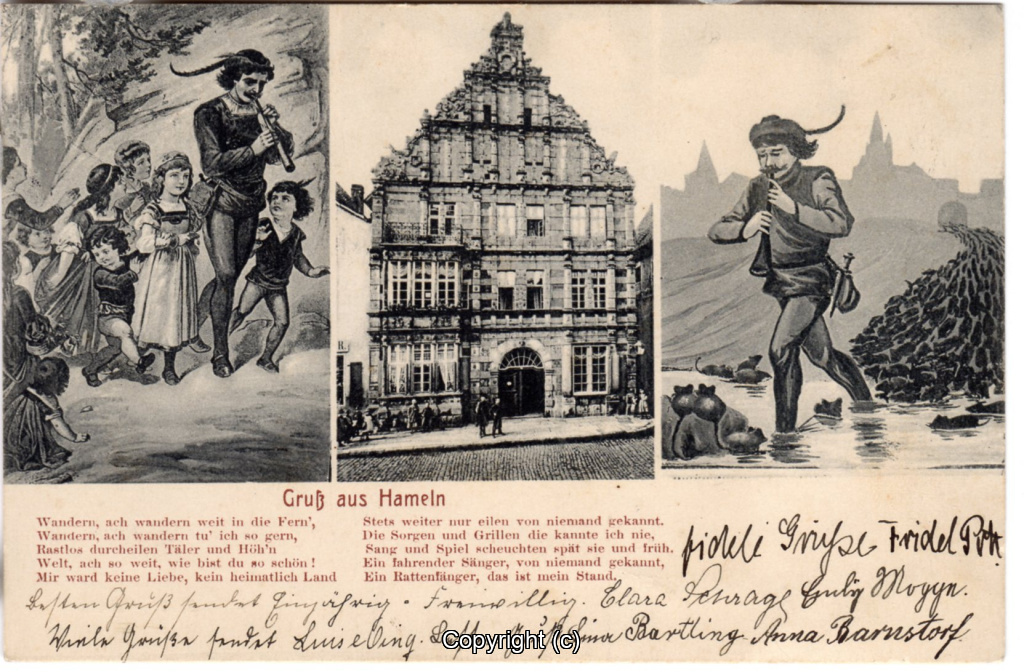 Gruß aus Hameln
Wandern, ach wandern weit in die Fern',
Wandern, ach wandern tu' ich so gern,
Rastlos durcheilen Täler und Höh'n
Welt, ach so weit, wie bist du so schön!
Mir ward keine Liebe, kein heimatlich Land
Stets weiter nur eilen von niemand gekannt.
Die Sorgen und Grillen die kannte ich nie,
Sang und Spiel scheuchten spät sie und früh.
Ein fahrender Sänger, von niemand gekannt,
Ein Rattenfänger, das ist mein Stand.
fidele Grüße Fridel
Besten Gruß sendet Einjährig - Freiwillig. Clara Schrage Emly Mogge.
Viele Grüße sendet Luise Bartling Anna Barnstorf.
Copyright (c)
R.